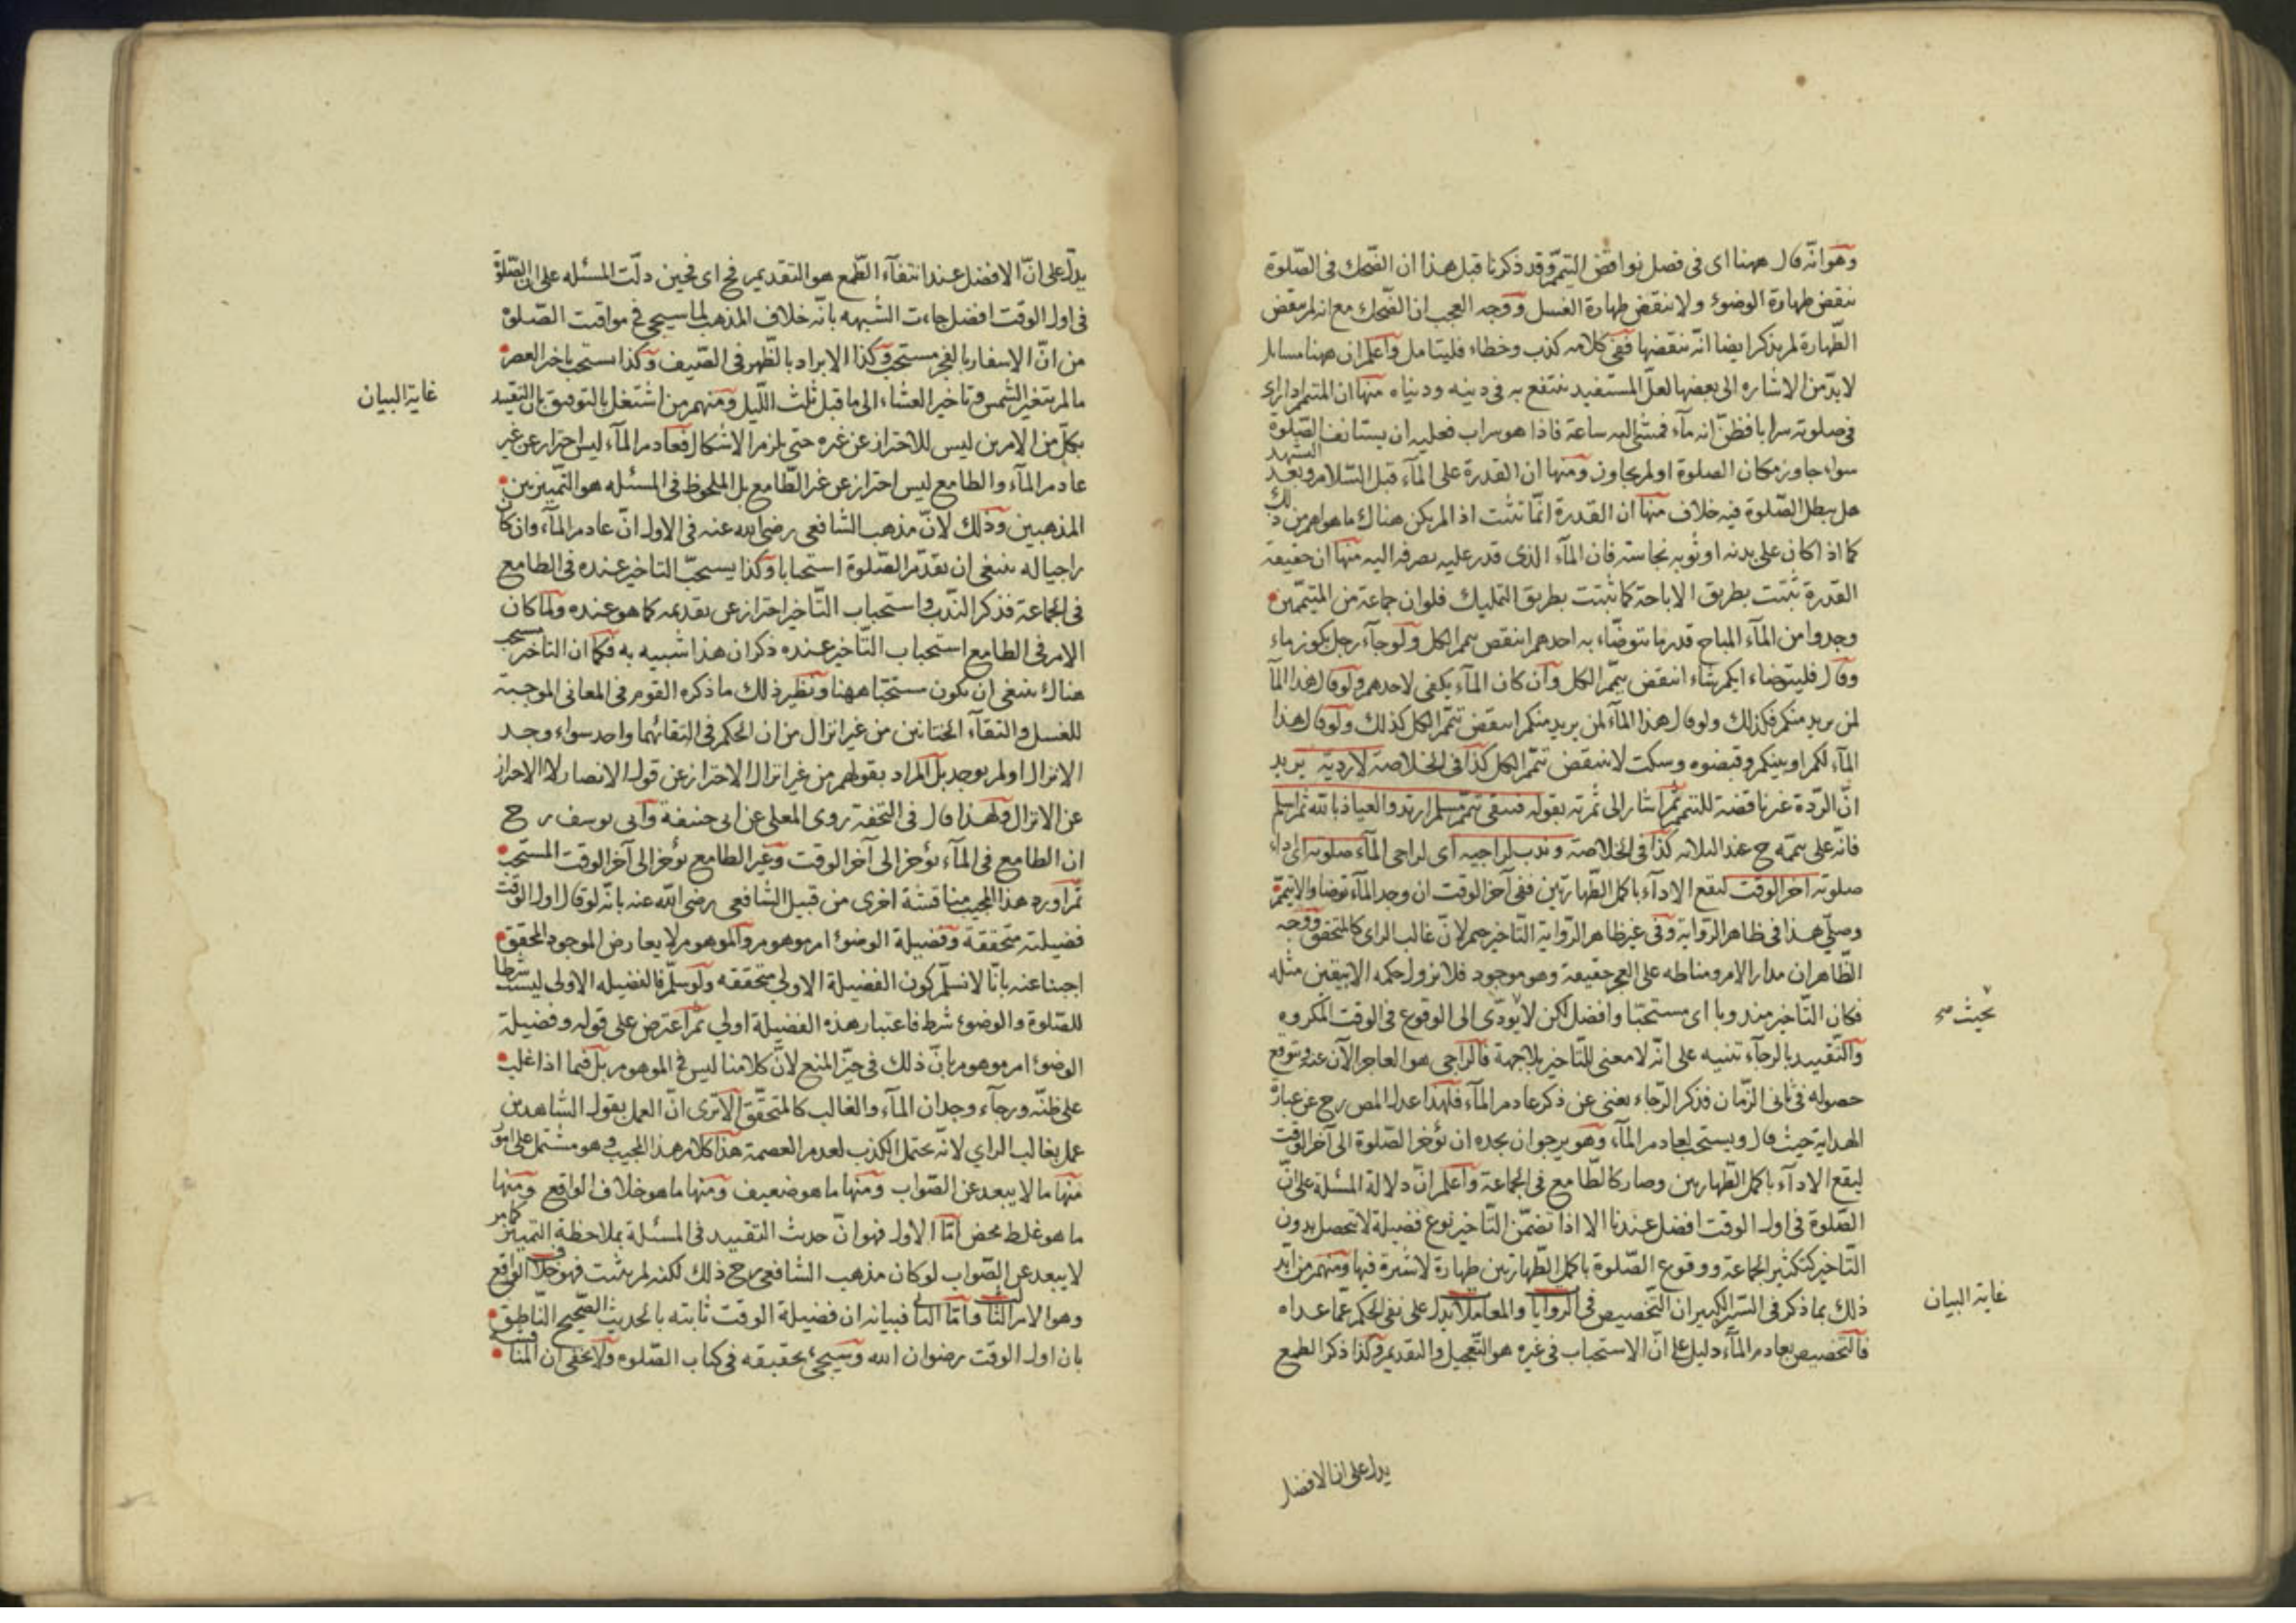 وهو انّه قال ههنا اى فى فصل نواقض التيمّم وقد ذكرنا قبل هذا ان الضّحك فى الصّلوة
ننقض طهارة الوضوء ولا ننقض طهارة الغسل ووجه العجب ان الضّحك مع انه لم ىىقض
الطّهارة لم يذكر ايضا انّه ننقضها ففى كلامه كذب وخطاء فليتامل واعلم ان ههنا مسائل
لابدّ من الاشاره الى بعضها لعلّ المستفيد ىنتفع به فى دينه ودنياه منها ان المتيمم اذا راى
فى صلوته سرابا فظنّ انه مآء فمشى اليه ساعة فاذا هو سراب فعليه ان يستانف الصّلوة
سواء جاوز مكان الصلوة او لم يجاوز ومنها ان القدرة على المآء قبل السّلام وبعد التشهد
هل يبطل الصّلوة فيه خلاف منها ان القدرة انّما تثبت اذا لم يكن هناك ما هو اهم من ذلك
كما اذا كان على بدنه او ثوبه نجاسة فان المآء الذى قدر عليه يصرفه اليه منها ان حقيقة
القدرة تثبت بطريق الاباحة كما ثبتت بطريق التمليك فلو ان جماعة من المتيمّمين
وجدوا من المآء المباح قدر ما يتوضّاء به احدهم انتقض تيمم الكل ولو جآء رجل بكوز ماء
وقال فليتوضاء ايكم شاء انتقض تيمّم الكل وان كان المآء يكفى لاحدهم ولو قال هذا المآ
لمن يريد منكم فكذلك ولو قال هذا المآء لمن يريد منكم انتقض تيمّم الكل كذلك ولو قال هذا
المآء لكم او بينكم وقبضوه وسكت لا ننتقض تيمّم الكل كذا فى الخلاصة لا ردّته يريد
انّ الردّة غير ناقضة للتيمّم ثم اشار الى ثمرته بقوله فيبقى تيمّم مسلم ارتد والعياذ بالله ثم اسلم
فانّه على تيممه ح عند الثلاثه كذا فى الخلاصة وندب لراجيه اى لراجى المآء صلوته اى اداء
صلوته آخر الوقت ليقع الادآء باكمل الطّهارتين ففى آخر الوقت ان وجد المآء توضا والا تيمّم
وصلّى هذا فى ظاهر الرّواية وفى غير ظاهر الرّواية التّاخير حتم لانّ غالب الراى كالمتحقق ووجه
الظّاهر ان مدار الامر ومناطه على العجز حقيقة وهو موجود فلا يزول حكمه الا بيقين مثله
فكان التّاخير مندوبا اى مستحبّا وافضل لكن لا يؤدّى الى الوقوع فى الوقت المكروه
بحيث صح
والتّقييد بالرجآء تنبيه على انّه لا معنى للتّاخير بلا جهة فالراجى هو العاجز الآن عنه وىتوقع
حصوله فى ثانى الزّمان فذكر الرّجاء يغنى عن ذكر عادم المآء فلهذا عدل المص رح عن عبارة
الهداية حيث قال ويستحب لعادم المآء وهو يرجو ان يجده ان يؤخر الصّلوة الى آخر الوقت
ليقع الادآء باكمل الطّهارتين وصار كالطّامع فى الجماعة واعلم انّ دلالة المسئلة على انّ
الصّلوة فى اول الوقت افضل عندنا الا اذا تضمّن التّاخير نوع فضيلة لا تحصل بدون
التّاخير كتكثير الجماعة ووقوع الصّلوة باكمل الطّهارتين طهارة لا شبهة فيها ومنهم من ايّد
ذلك بما ذكر فى السّير الكبير ان التّخصيص فى الروايات والمعاملات يدل على نفى الحكم عمّا عداه
غاية البيان
فالتّخصيص بعادم المآء دليل على انّ الاستحباب فى غيره هو التّعجيل والتقديم وكذا ذكر الطمع
يدل على ان الافضل
يدلّ على انّ الافضل عند انتفآء الطّمع هو التقديم فح اى فحين دلّت المسئله على ان الصّلوة
فى اول الوقت افضل جاءت الشّبهه بانّه خلاف المذهب لما سيجئ فى مواقيت الصّلوة
من انّ الاسفار بالفجر مستحب وكذا الابراد بالظّهر فى الصّيف وكذا يستحب تاخير العصر
ما لم يتغير الشّمس وتاخير العشاء الى ما قبل ثلث اللّيل ومنهم من اشتغل بالتوفيق بان التقييد
غاية البيان
بكلّ من الامرين ليس للاحتراز عن غيره حتى يلزم الاشكال فعادم المآء ليس احتراز عن غير
عادم المآء والطامع ليس احتراز عن غير الطّامع بل الملحوظ فى المسئله هو التّمييز بين
المذهبين وذلك لانّ مذهب الشّافعى رضى الله عنه فى الاول انّ عادم المآء وان كان
راجيا له ينبغى ان يقدّم الصّلوة استحبابا وكذا يستحبّ التاخير عنده فى الطامع
فى الجماعة فذكر النّدب واستحباب التّاخير احتراز عن تقديمه كما هو عنده ولمّا كان
الامر فى الطامع استحباب التّاخير عنده ذكر ان هذا شبيه به فكما ان التاخير مستحب
هناك ينبغى ان يكون مستحبّا ههنا ونظير ذلك ما ذكره القوم فى المعانى الموجبة
للغسل والتقآء الختانين من غير انزال من ان الحكم فى التقائهما واحد سواء وجد
الانزال او لم يوجد بل المراد بقولهم من غير انزال الاحتراز عن قول الانصار لا الاحتراز
عن الانزال ولهذا قال فى التحفة روى المعلى عن ابى حنيفة وابى يوسف رح
ان الطامع فى المآء يؤخر الى آخر الوقت وغير الطامع يؤخر الى آخر الوقت المستحب
ثم اورد هذا المجيب مناقشة اخرى من قبيل الشافعى رضى الله عنه بانّه لو قال اول الوقت
فضيلته متحققة وفضيلة الوضوء امر موهوم والموهوم لا يعارض الموجود المحقق
اجبنا عنه بانّا لا نسلّم كون الفضيلة الاولى متحققه ولو سلّم فالفضيله الاولى ليست شرطا
للصّلوة والوضوء شرط فاعتبار هذه الفضيلة اولى ثم اعترض على قوله وفضيلة
الوضوء امر موهوم بانّ ذلك فى حيّز المنع لانّ كلامنا ليس فى الموهوم بل فيما اذا غلب
على ظنّه ورجآء وجدان المآء والغالب كالمتحقّق الا ترى انّ العمل بقول الشاهدين
عمل بغالب الراي لانّه يحتمل الكذب لعدم العصمة هذا كلام هذا المجيب وهو مشتمل على امور
منها ما لا يبعد عن الصّواب ومنها ما هو ضعيف ومنها ما هو خلاف الواقع ومنها
ما هو غلط محض امّا الاول فهو انّ حديث التقييد فى المسئلة بملاحظة التمييز كما مر
لا يبعد عن الصّواب لو كان مذهب الشافعى رح ذلك لكنه لم يثبت فهو خلاف الواقع
وهو الامر الثالث وامّا الثانى فبيانه ان فضيلة الوقت ثابته بالحديث الصّحيح النّاطق
بان اول الوقت رضوان الله وسيجئ تحقيقه فى كتاب الصّلوه ولا يخفى ان